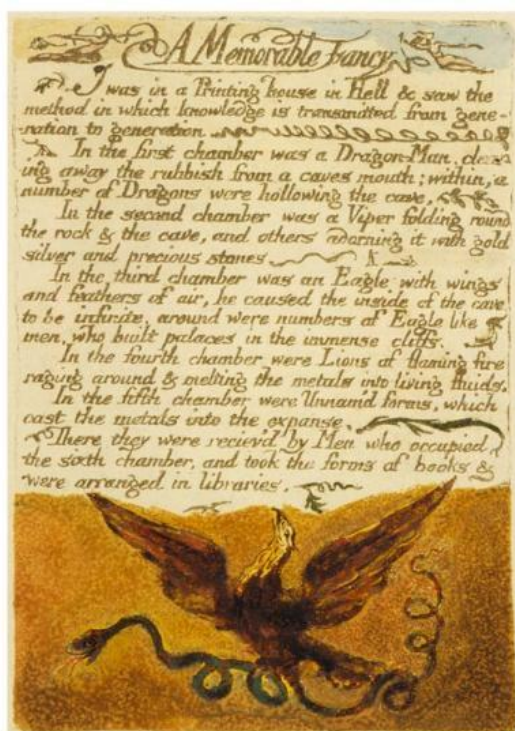 A Memorable Fancy
I was in a Printing house in Hell & saw the
method in which knowledge is transmitted from gene-
ration to generation.
In the first chamber was a Dragon-Man, clear-
ing away the rubbish from a caves mouth; within, a
number of Dragons were hollowing the cave,
In the second chamber was a Viper folding round
the rock & the cave, and others adorning it with gold
silver and precious stones.
In the third chamber was an Eagle with wings
and feathers of air, he caused the inside of the cave
to be infinite, around were numbers of Eagle like
men, who built palaces in the immense cliffs.
In the fourth chamber were Lions of flaming fire
raging around & melting the metals into living fluids.
In the fifth chamber were Unnam'd forms, which
cast the metals into the expanse.
There they were reciev'd by Men who occupied
the sixth chamber, and took the forms of books &
were arranged in libraries.